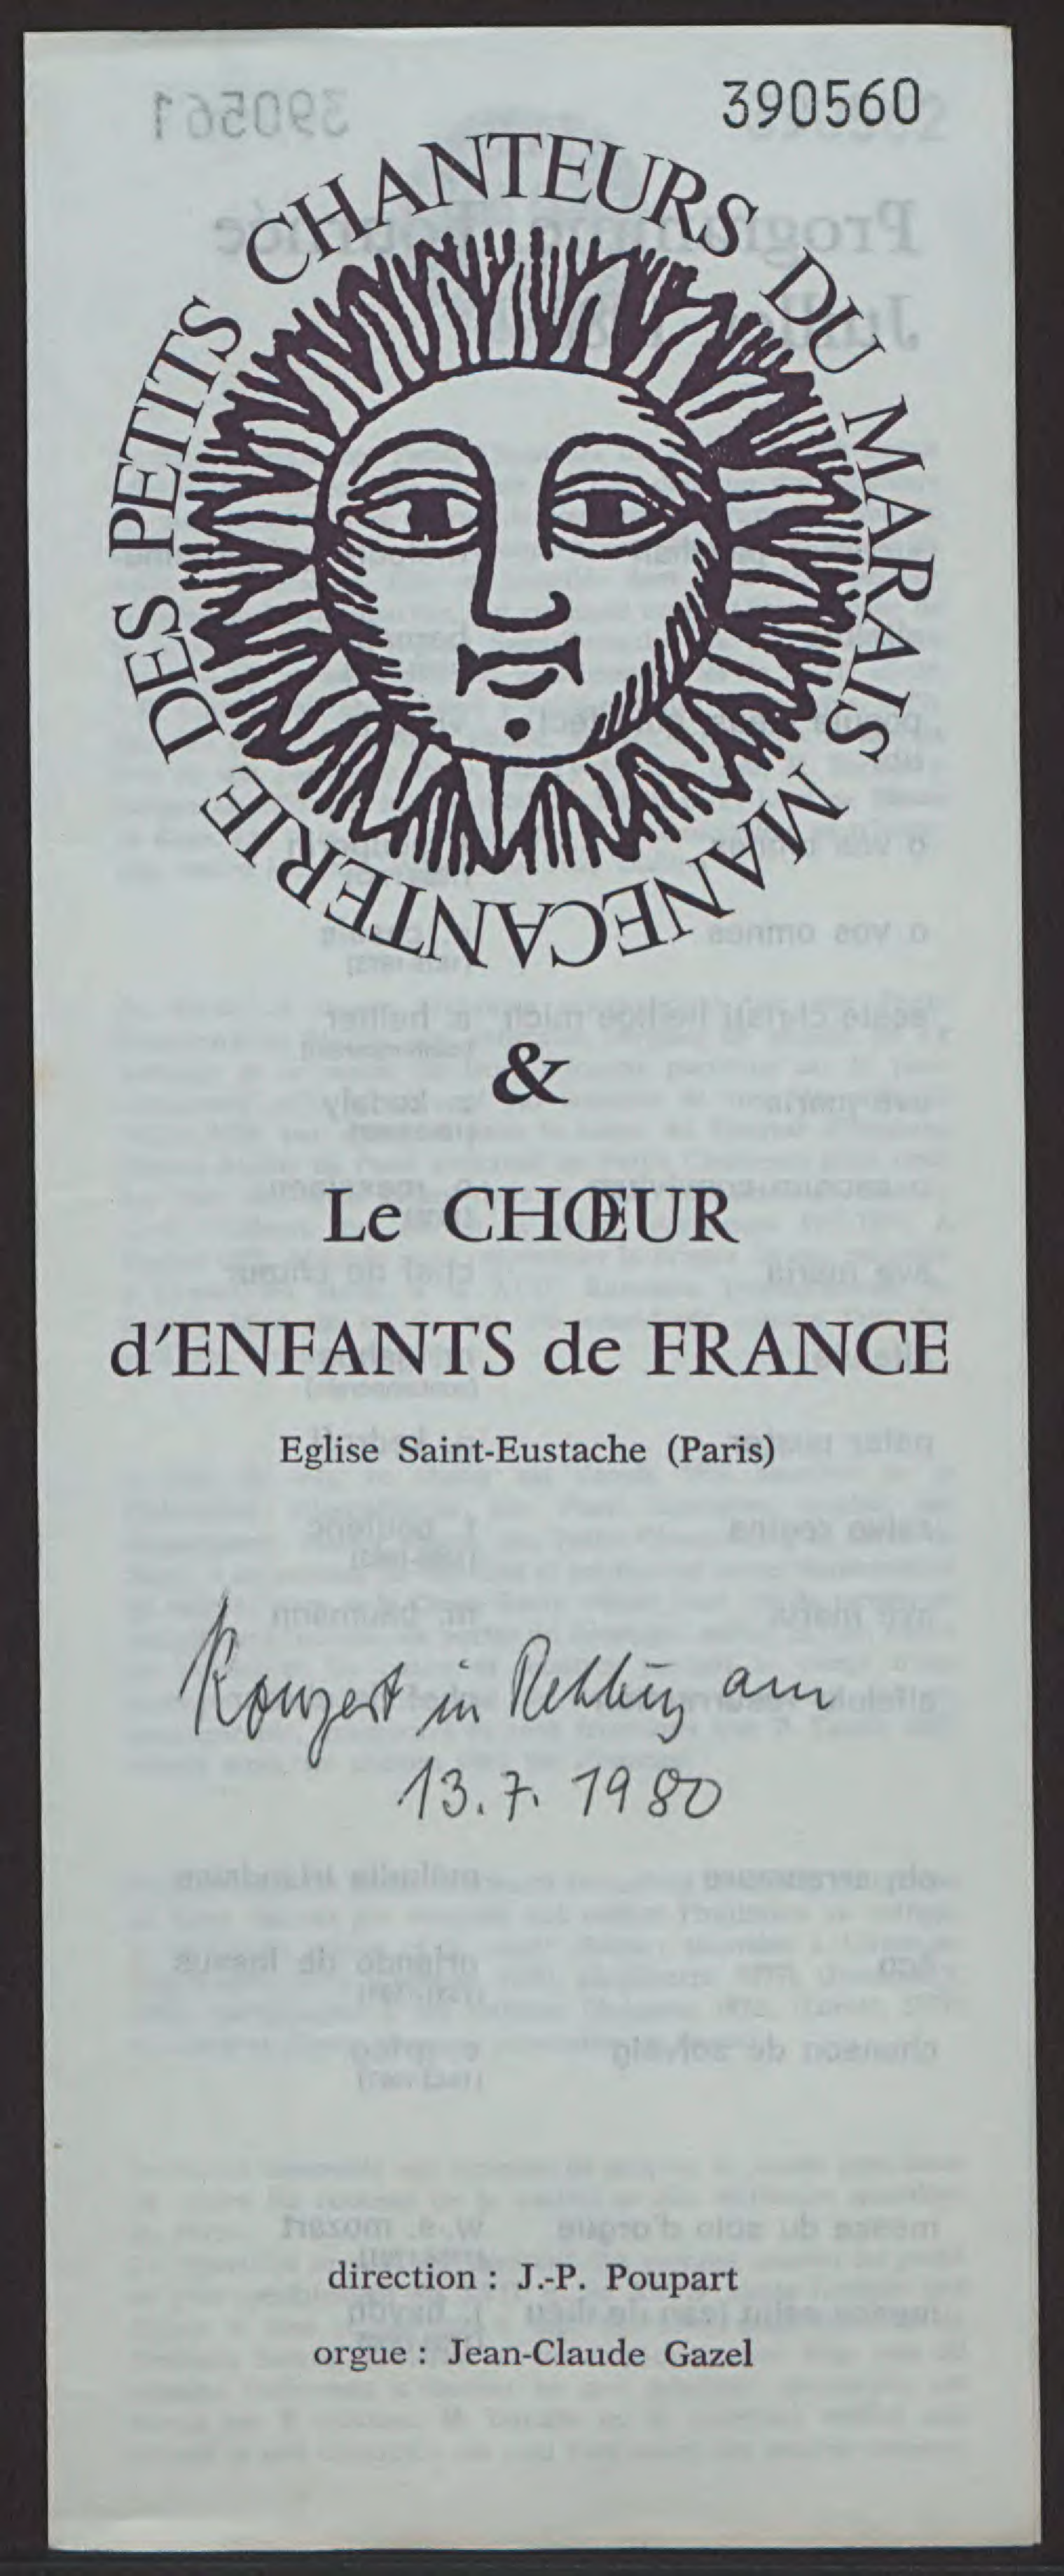 390560
MANECANTERIE DES PETITS CHANTEURS DU MARAIS
&
Le CHŒUR
d'ENFANTS de FRANCE
Eglise Saint-Eustache (Paris)
Konzert in am
13.7. 1980
direction : J.-P. Poupart
orgue : Jean-Claude Gazel